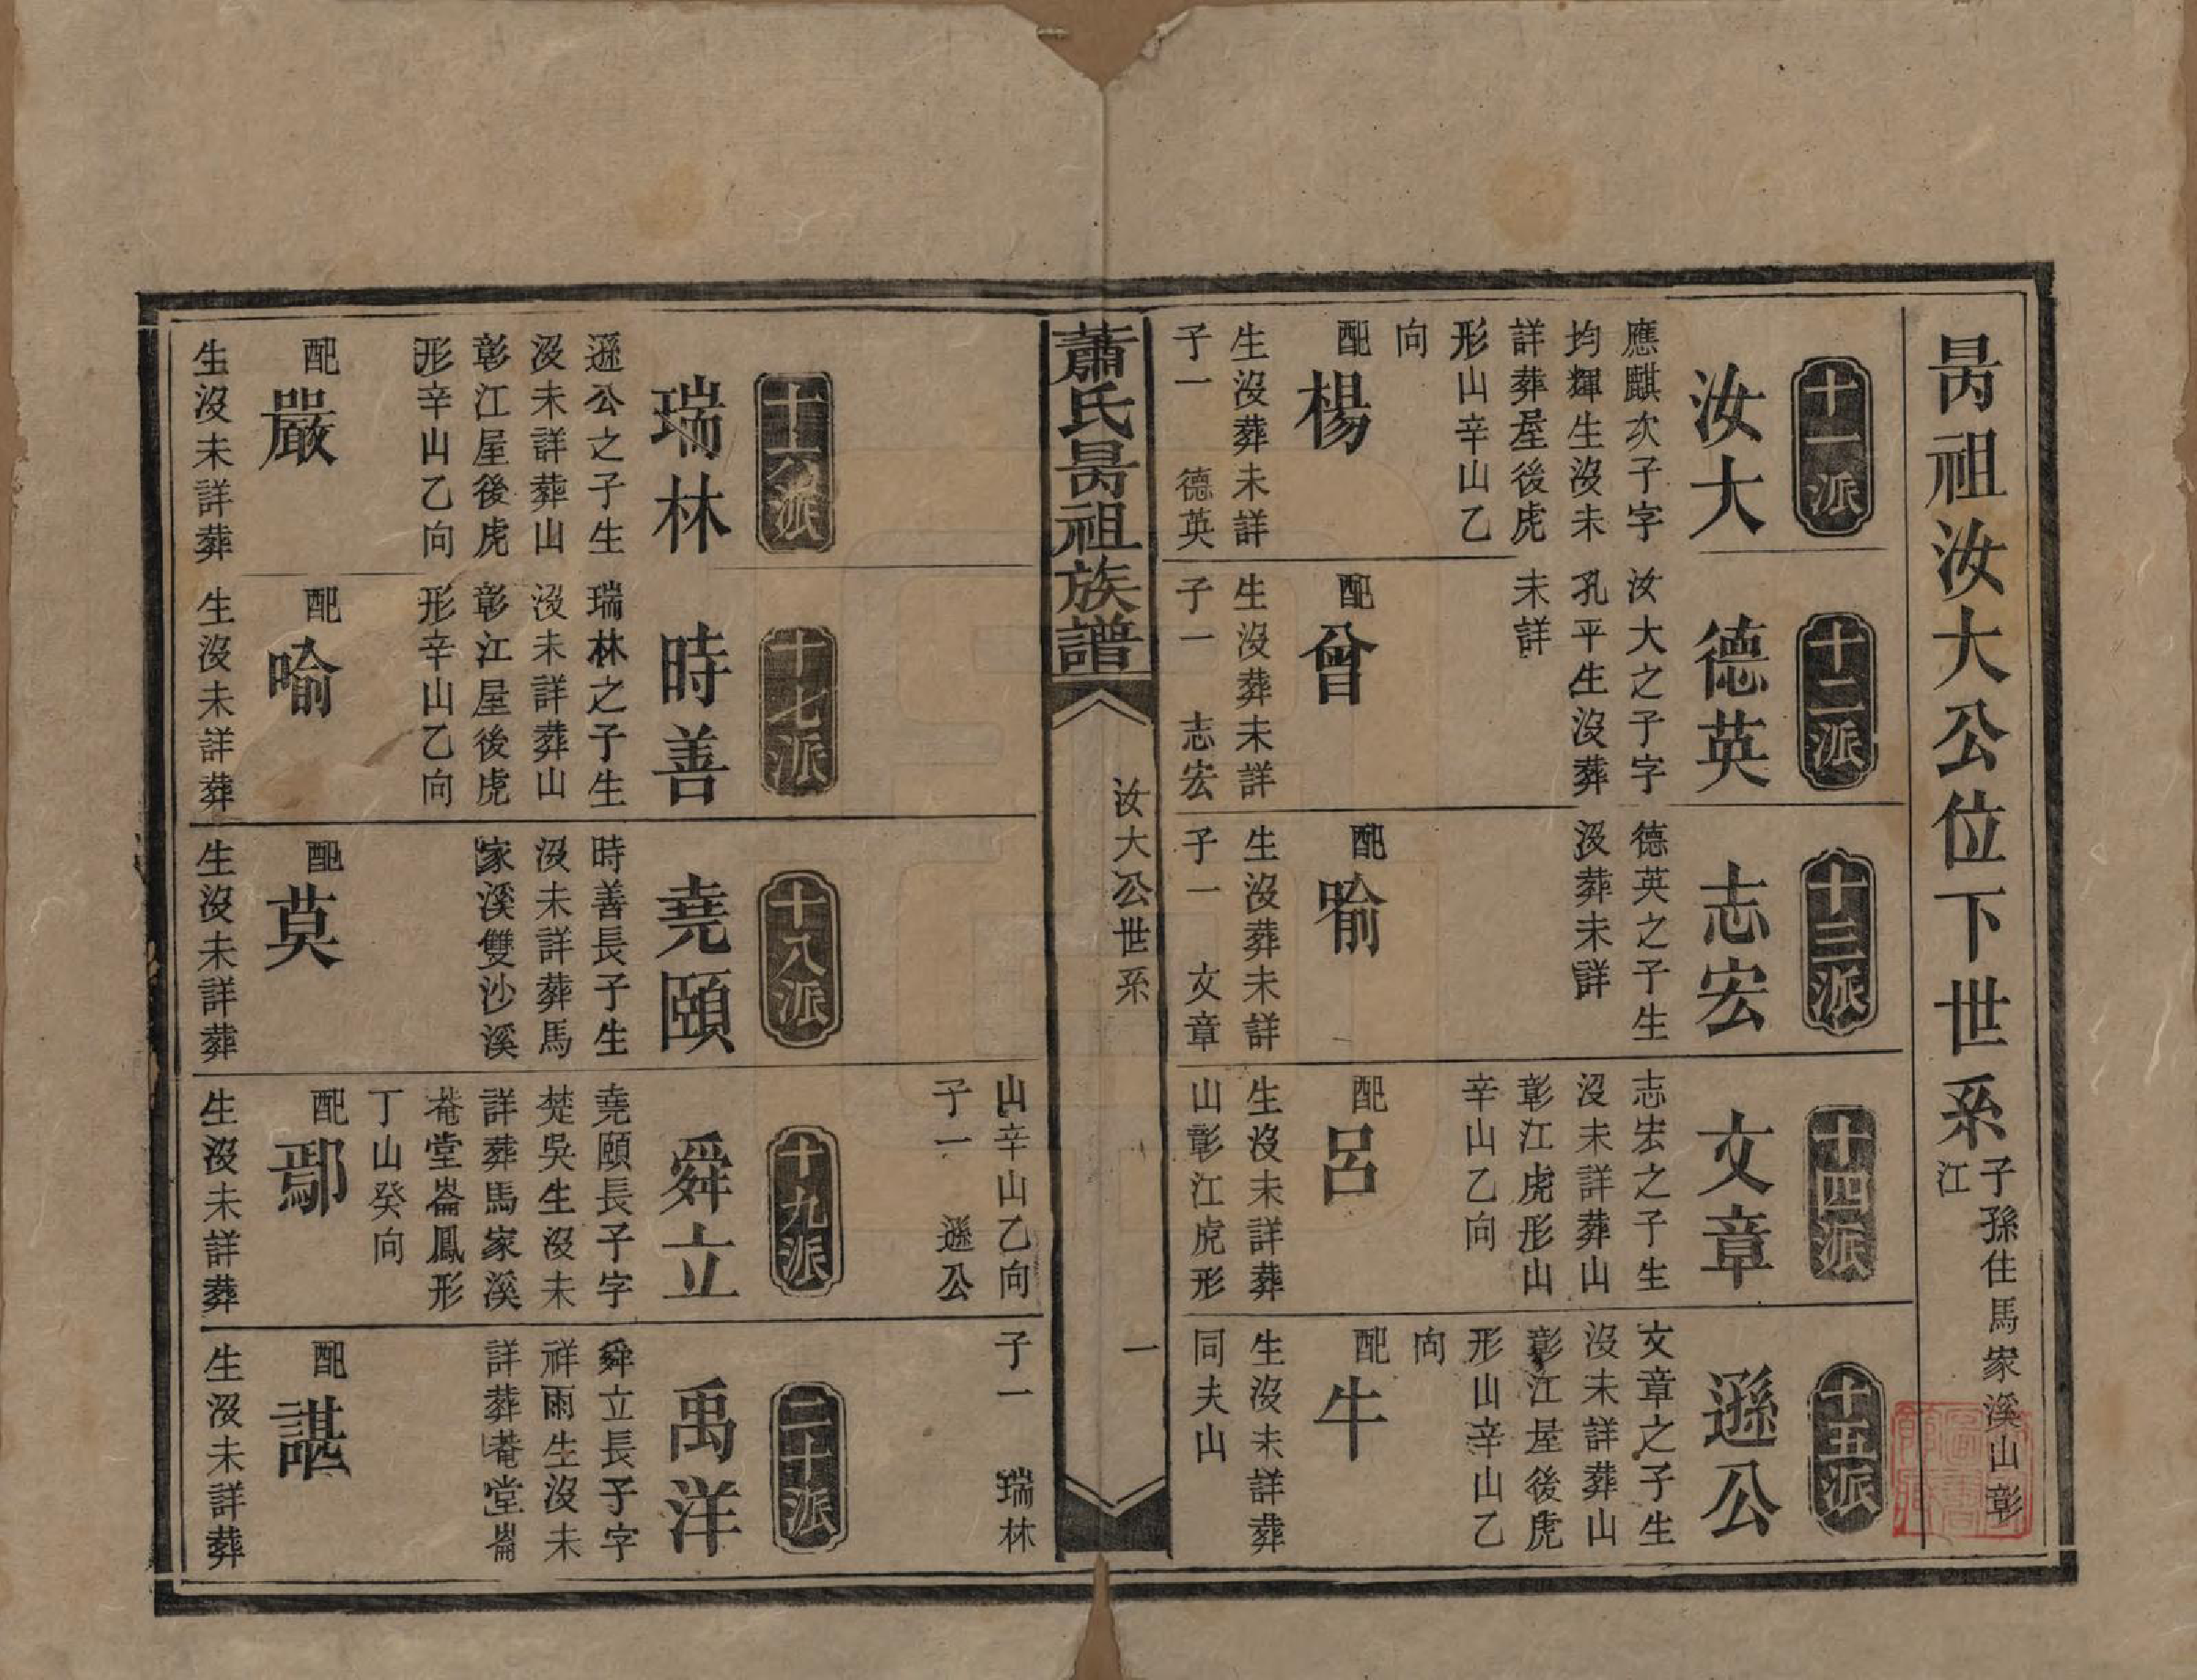 昺祖汝大公位下世系
子孫住馬家溪山彰
江
十一派
汝大
應麒次子字
均輝生沒未
詳葬屋後虎
形山辛山乙
向
配
楊
生沒葬未詳
子一 德英
十二派
德英
汝大之子字
孔平生沒葬
未詳
配
曾
生沒葬未詳
子一 志宏
十三派
志宏
德英之子生
沒葬未詳
配
喻
生沒葬未詳
子一 文章
十四派
文章
志宏之子生
沒未詳葬山
彰江虎形山
辛山乙向
配
呂
生沒未詳葬
山彰江虎形
山辛山乙向
子一 遜公
十五派
遜公
文章之子生
沒未詳葬山
彰江屋後虎
形山辛山乙
向
配
牛
生沒未詳葬
同夫山
子一 瑞林
蕭氏昺祖族譜
汝大公世系
一
十六派
瑞林
遜公之子生
沒未詳葬山
彰江屋後虎
形辛山乙向
配
嚴
生沒未詳葬
十七派
時善
瑞林之子生
沒未詳葬山
彰江屋後虎
形辛山乙向
配
喻
生沒未詳葬
十八派
堯頤
時善長子生
沒未詳葬馬
家溪雙沙溪
配
莫
生沒未詳葬
十九派
舜立
堯頤長子字
楚吳生沒未
詳葬馬家溪
菴堂崙鳳形
丁山癸向
配
鄢
生沒未詳葬
二十派
禹洋
舜立長子字
祥雨生沒未
詳葬菴堂崙
配
諶
生沒未詳葬